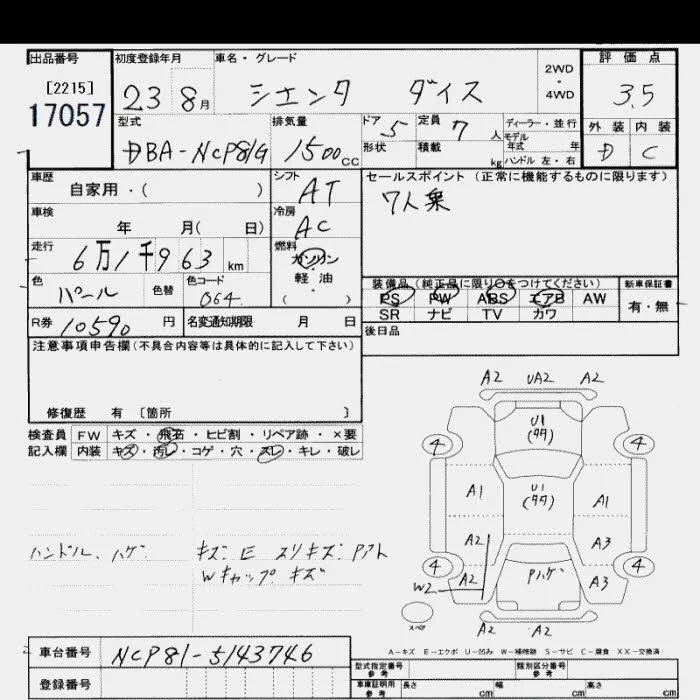 出品番号 初度登録年月 車名・グレード 2WD・4WD 評価点
[2215]
17057 23 8月 シエンタ ダイス 3.5
型式 排気量 ドア 5 定員 7人 ディーラー・並行 外装 内装
モデル年式 年
DBA-NCP81G 1500cc 形状 積載 kg ハンドル 左・右 D C
車歴 シフト セールスポイント (正常に機能するものに限ります)
自家用・( ) AT 7人乗
車検 冷房
年 月( 日) AC
走行 燃料
6万1千963 km ガソリン・軽油・( )
色 色替 色コード 装備品(純正品に限り○をつけてください) 新車保証書
パール 064 PS PW ABS エアB AW 有・無
SR ナビ TV カワ
R券 10590 円 名変通知期限 月 日 後日品
注意事項申告欄(不具合内容等は具体的に記入して下さい)
修復歴 有 〔箇所 〕
検査員 FW キズ・飛石・ヒビ割・リペア跡・×要
記入欄 内装 キズ・汚レ・コゲ・穴・スレ・キレ・破レ
A2 UA2 A2
U1
4 4
A1 U1 A1
ハンドル、ハゲ キズ E スリキズ Pアト
Wキャップ キズ
A2 A3
4 A2 Pハゲ A3 4
W2
スペア
A2 A2
A-キズ E-エクボ U-凹み W-補修跡 S-サビ C-腐食 XX-交換済
車台番号 NCP81-5143746
登録番号
型式指定番号 参考 類別区分番号 参考
車庫証明用 参考 長さ cm 幅 cm 高さ cm